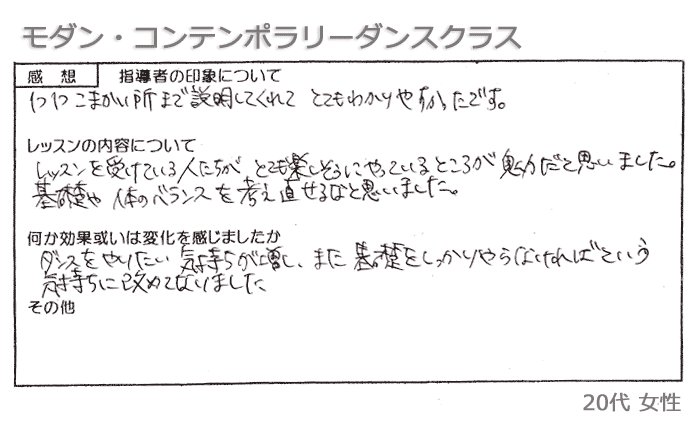 モダン・コンテンポラリーダンスクラス
感想 指導者の印象について
1つ1つこまかい所まで説明してくれて とてもわかりやすかったです。
レッスンの内容について
レッスンを受けている人たちが、とても楽しそうにやっているところが魅力だと思いました。
基礎や 体のバランスを考え直せるなと思いました。
何か効果或いは変化を感じましたか
ダンスをやりたい気持ちが増し、また 基礎をしっかりやらなければという
気持ちに改めてなりました
その他
20代 女性